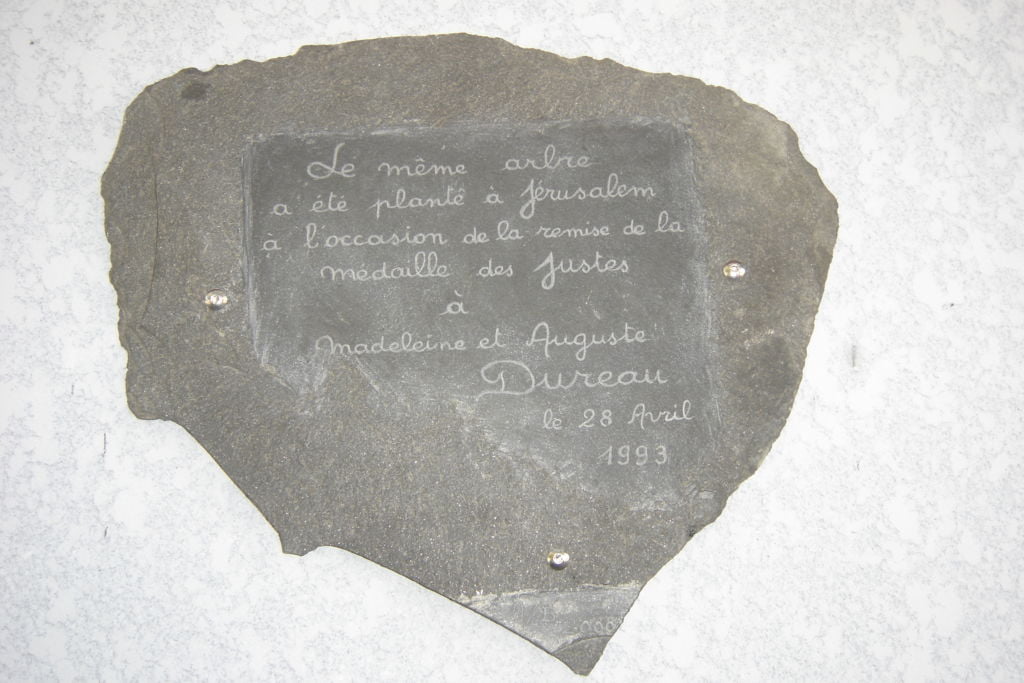 Le même arbre
a été planté à Jérusalem
à l'occasion de la remise de la
Médaille des Justes
à
Madeleine et Auguste
Dureau
le 28 Avril
1993